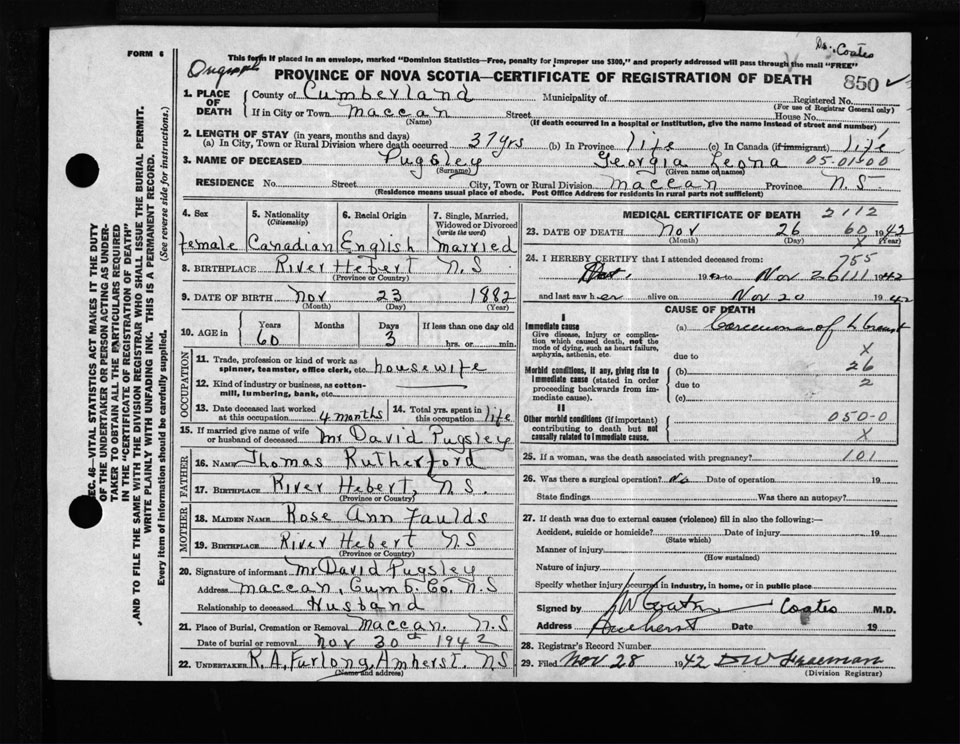 FORM 6
Dr. Coates
This form if placed in an envelope, marked "Dominion Statistics—Free, penalty for improper use $300," and properly addressed will pass through the mail "FREE"
PROVINCE OF NOVA SCOTIA—CERTIFICATE OF REGISTRATION OF DEATH
850
1. PLACE OF DEATH County of Cumberland Municipality of Registered No.
(For use of Registrar General only)
If in City or Town Maccan Street House No.
(Name) (If death occurred in a hospital or institution, give the name instead of street and number)
2. LENGTH OF STAY (in years, months and days)
(a) In City, Town or Rural Division where death occurred 37 yrs (b) In Province life (c) In Canada (if immigrant) life
3. NAME OF DECEASED Pugsley Georgia Leona 05-01-00
(Surname) (Given name or names)
RESIDENCE No. Street City, Town or Rural Division Maccan Province N.S
(Residence means usual place of abode. Post Office Address for residents in rural parts not sufficient)
4. Sex 5. Nationality (Citizenship) 6. Racial Origin 7. Single, Married, Widowed or Divorced (write the word)
female Canadian English married
8. BIRTHPLACE River Hebert N.S
(Province or Country)
9. DATE OF BIRTH Nov 23 1882
(Month) (Day) (Year)
10. AGE in Years Months Days If less than one day old
60 3 hrs. or min.
OCCUPATION
11. Trade, profession or kind of work as spinner, teamster, office clerk, etc. housewife
12. Kind of industry or business, as cotton-mill, lumbering, bank, etc.
13. Date deceased last worked at this occupation 4 months 14. Total yrs. spent in this occupation life
15. If married give name of wife or husband of deceased Mr David Pugsley
FATHER
16. NAME Thomas Rutherford
17. BIRTHPLACE River Hebert, N.S.
(Province or Country)
MOTHER
18. MAIDEN NAME Rose Ann Faulds
19. BIRTHPLACE River Hebert N.S
(Province or Country)
20. Signature of informant Mr David Pugsley
Address Maccan, Cumb. Co. N.S
Relationship to deceased Husband
21. Place of Burial, Cremation or Removal Maccan. N.S
Date of burial or removal Nov 30th 1942
22. UNDERTAKER R. A. Furlong, Amherst. N.S
(Name and address)
MEDICAL CERTIFICATE OF DEATH 2112
23. DATE OF DEATH Nov 26 60 1942
(Month) (Day) X (Year)
24. I HEREBY CERTIFY that I attended deceased from: 755
19 42 to Nov 26 111 1942
and last saw her alive on Nov 20 1942
CAUSE OF DEATH
I
Immediate cause (a) of
Give disease, injury or complication which caused death, not the mode of dying, such as heart failure, asphyxia, asthenia, etc.
due to X
Morbid conditions, if any, giving rise to immediate cause (stated in order proceeding backwards from immediate cause). (b) 26
due to 2
(c)
II
Other morbid conditions (if important) contributing to death but not causally related to immediate cause. 050-0
X
25. If a woman, was the death associated with pregnancy? 101
26. Was there a surgical operation? No Date of operation 19
State findings Was there an autopsy?
27. If death was due to external causes (violence) fill in also the following:—
Accident, suicide or homicide? Date of injury 19
(State which)
Manner of injury
(How sustained)
Nature of injury
Specify whether injury occurred in industry, in home, or in public place
Signed by Coates M.D.
Address Amherst Date 19
28. Registrar's Record Number
29. Filed Nov 28 1942 D W Freeman
(Division Registrar)
SEC. 46—VITAL STATISTICS ACT MAKES IT THE DUTY
OF THE UNDERTAKER OR PERSON ACTING AS UNDER-
TAKER TO OBTAIN ALL THE PARTICULARS REQUIRED
IN THE "CERTIFICATE OF REGISTRATION OF DEATH"
AND TO FILE THE SAME WITH THE DIVISION REGISTRAR WHO SHALL ISSUE THE BURIAL PERMIT.
WRITE PLAINLY WITH UNFADING INK. THIS IS A PERMANENT RECORD.
Every item of information should be carefully supplied. (See reverse side for instructions.)